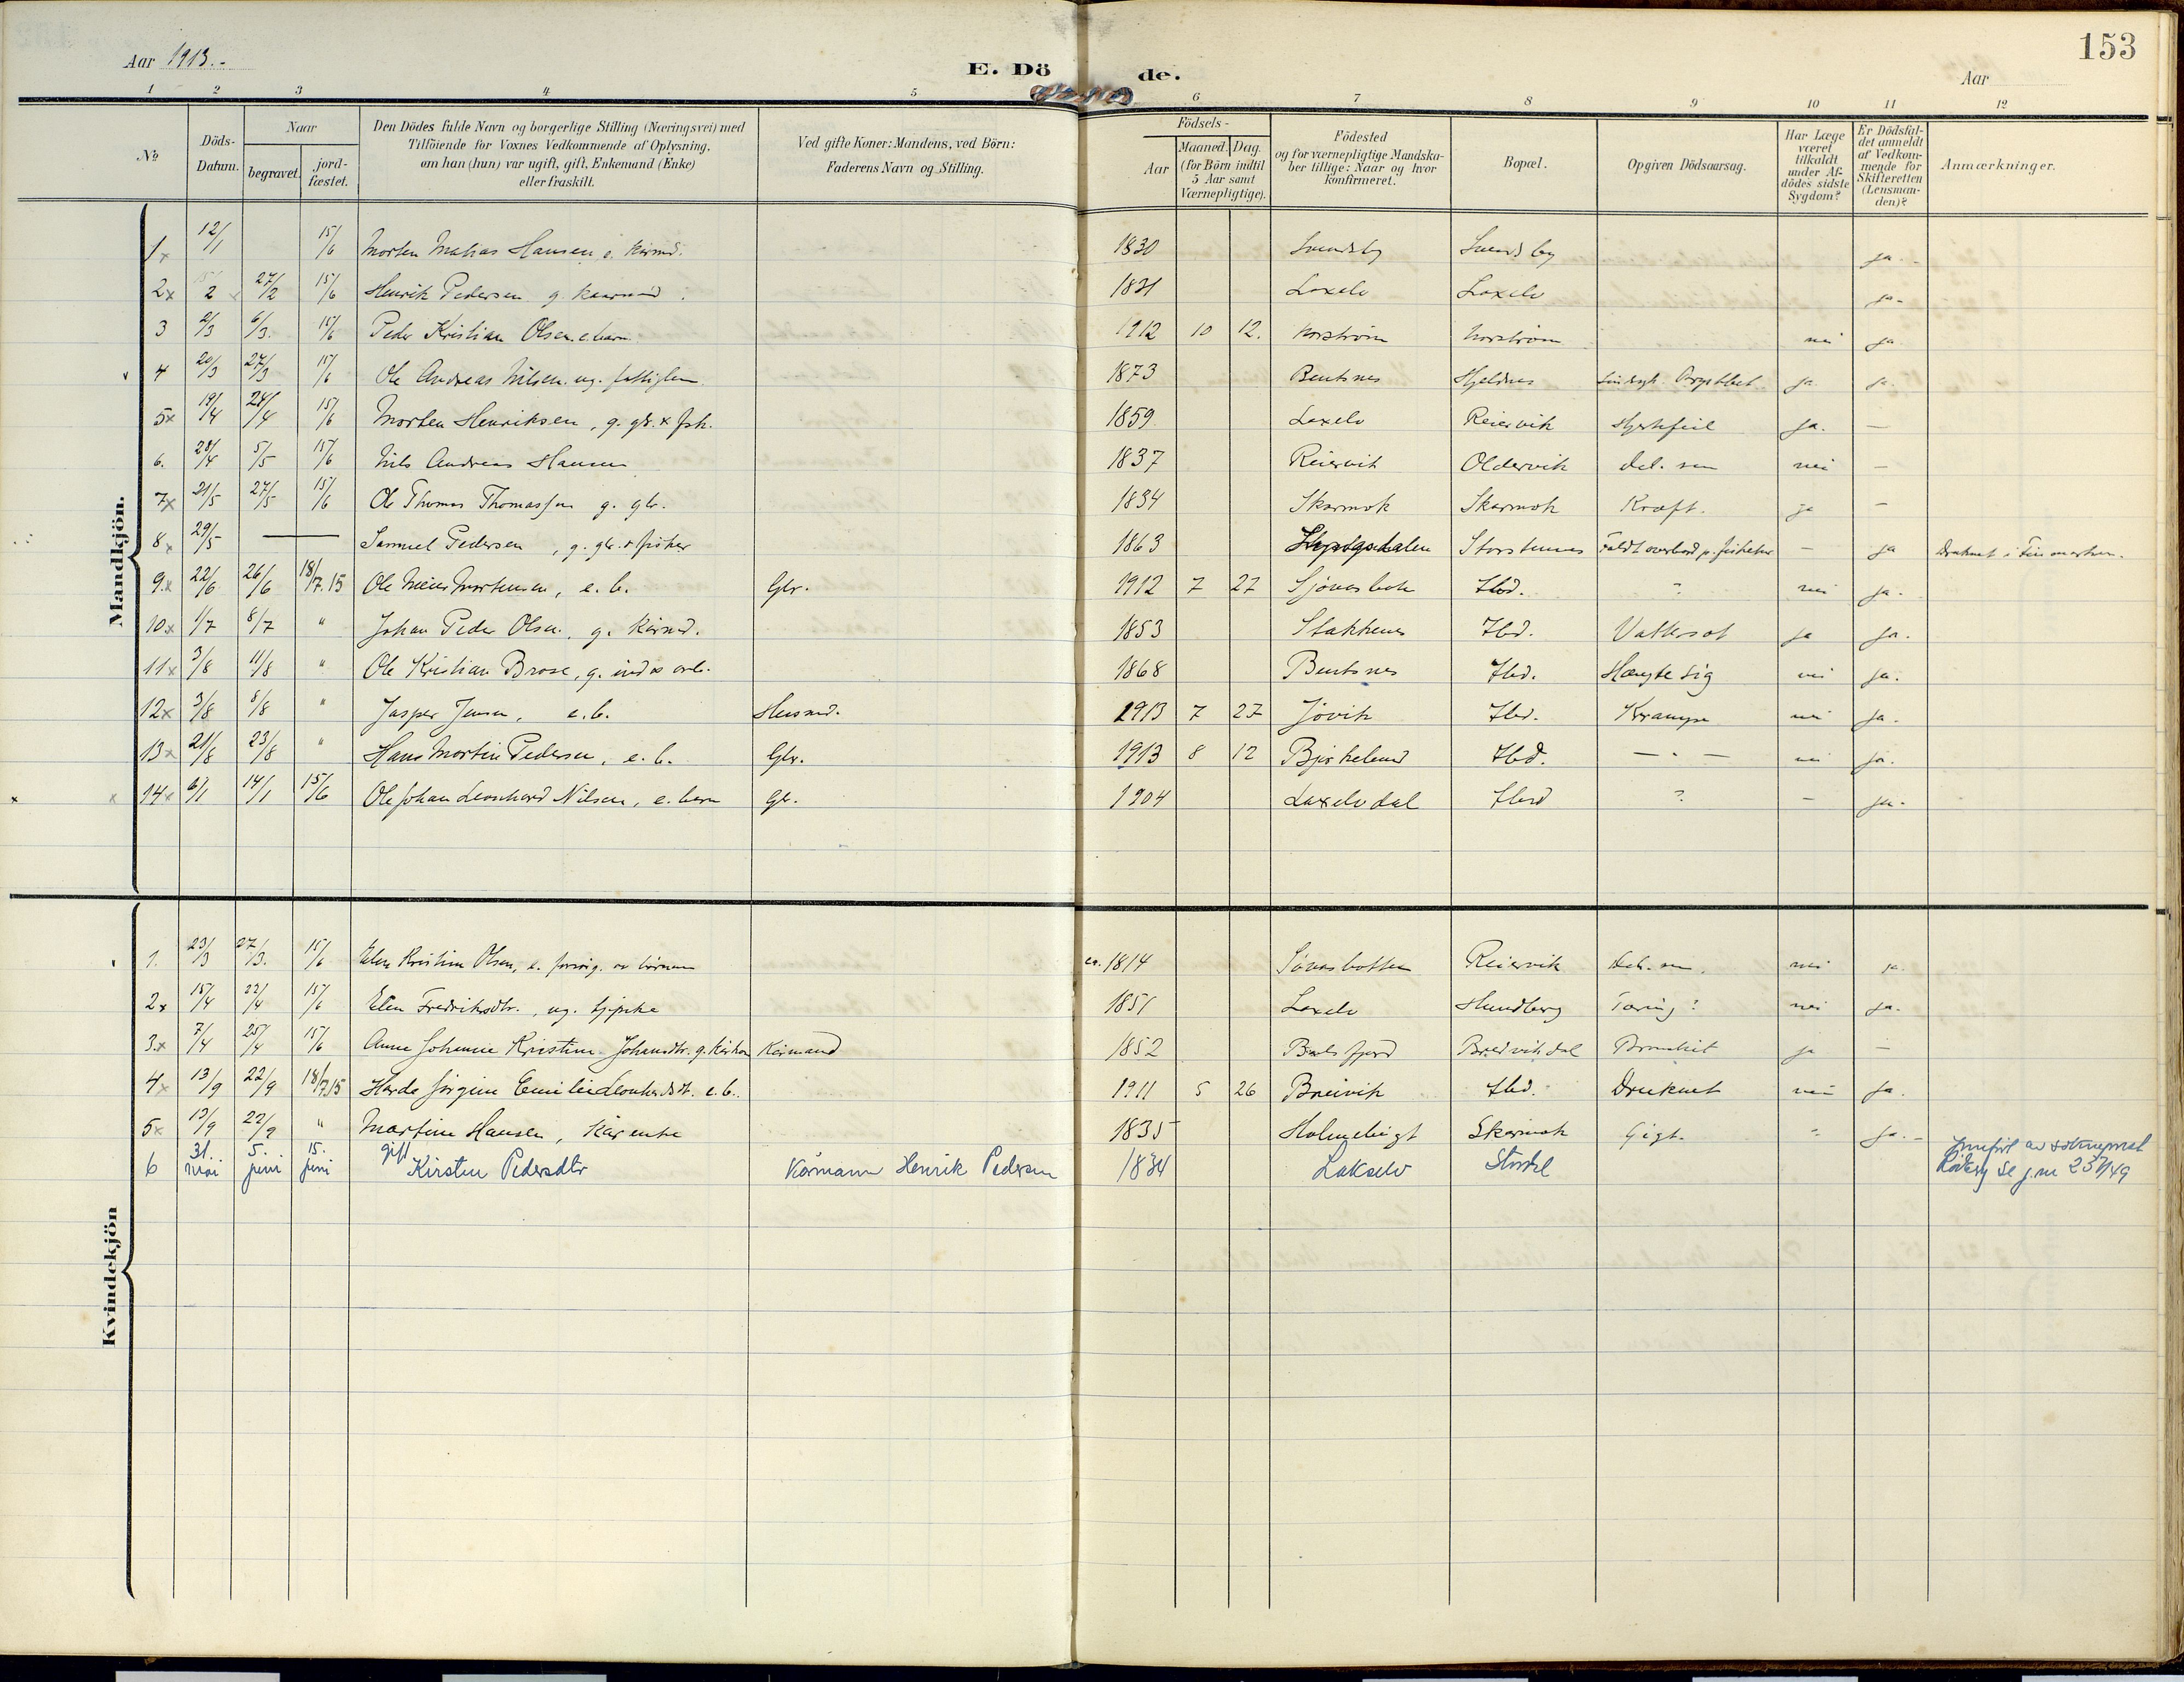 153
Aar 1913.-
E. Dö de.
Aar
1 2 3 4 5 6 7 8 9 10 11 12
No
Döds-Datum.
Naar
begravet.
jord-fæstet.
Den Dödes fulde Navn og borgerlige Stilling (Næringsvei) med
Tilföiende for Voxnes Vedkommende af Oplysning,
om han (hun) var ugift, gift, Enkemand (Enke)
eller fraskilt.
Ved gifte Koner: Mandens, ved Börn:
Faderens Navn og Stilling.
Födsels-
Aar
Maaned. Dag.
(for Börn indtil
5 Aar samt
Værnepligtige).
Födested
og for værnepligtige Mandska-
ber tillige: Naar og hvor
konfirmeret.
Bopæl.
Opgiven Dödsaarsag.
Har Læge
været
tilkaldt
under Af-
dödes sidste
Sygdom?
Er Dödsfal-
det anmeldt
af Vedkom-
mende for
Skifteretten
(Lensman-
den)?
Anmærkninger.
Mandkjön.
1x 12/1 15/6 Morten Matias Hansen e. 1830 Svendsby Svendsby ja.-
2x 2 27/2 15/6 Henrik Pedersen g. 1831 Laxelv Laxelv ja-
3 2/3 6/3. 15/6 Peder Kristian Olsen e. barn. 1912 10 12. Norström Norström nei ja
4 20/3 27/3 15/6 Ole Andreas Nilsen. ug. fattiglem 1873 Bentsnes Hjeldnes ja. ja.
5x 19/4 24/4 15/6 Morten Henriksen, g. gbr. x fsk. 1859 Laxelv Reiervik Hjertefeil ja. —
6. 28/4 5/5 15/6 Nils Andreas Hansen 1837 Reiervik Oldervik nei —
7x 21/5 27/5 15/6 Ole Thomas Thomassen g. gbr. 1834 Skarmok Skarmok Kræft. ja —
8x 29/5 — Samuel Pedersen, g. gbr. & fisker 1863 Storstennes Faldt overbord p. fisketur — ja Druknet i Finmarken.
9.x 22/6 26/6 18/7.15 Ole Meier Mortensen, e. b. Gbr. 1912 7 27 Sjövasbotn Ibd. ? nei ja.
10x 1/7 8/7 " Johan Peder Olsen, g. kårmd. 1853 Stakkenes Ibd. Vattersot ja ja.
11x 3/8 11/8 " Ole Kristian Brose, g. 1868 Bentsnes Ibd. Hængte sig nei ja.
12x 3/8 8/8 " Jasper Jensen, e. b. Husmd. 1913 7 27 Jövik Ibd. Krampe nei ja.
13x 21/8 23/8 " Hans Martin Pedersen, e. b. Gbr. 1913 8 12 Bjørkelund Ibd. — " — nei ja.
x x 14x 6/1 14/1 15/6 Ole Johan Leonhard Nilsen, e. barn Gb. 1904 Laxelvdal Ibid ? — ja.
Kvindekjön
1. 23/3 27/3. 15/6 Elen Kristine Olsen, e. forsörg. av börnene ca. 1814 Sövasbotten Reiervik nei ja.
2x 15/4 22/4 15/6 Elen Fredriksdtr., ug. 1851 Laxelv Hundberg Tæring? nei ja.
3.x 7/4 25/4 15/6 Anne Johanne Kristine Johansdtr. g. Kårmand 1852 Balsfjord Breivikdal Bronkit ja —
4x 13/9 22/9 18/7.15 Jörgine Emilie Leonhardsdt. e. b. 1911 5 26 Breivik Ibd. Druknet nei ja.
5x 13/9 22/9 " Martine Hansen, kårenke 1835 Holmebugt Skarmok Gigt. ja.-
6 31. mai 5. juni 15. juni gift Kirsten Pedersdtr Kårmann Henrik Pedersen 1834 Lakselv
Innført av sokneprest
se j.nr 237/49